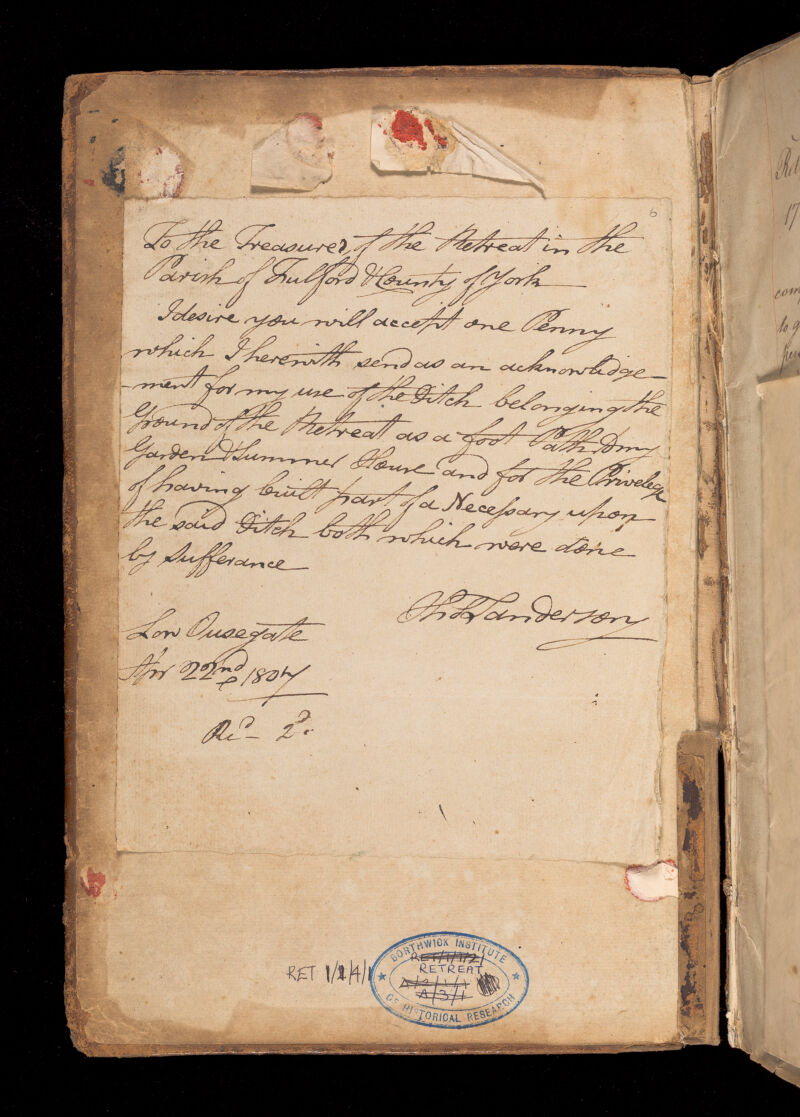 6
To the Treasurer of the Retreat in the
Parish of Fulford & County of York
I desire you will accept one Penny
which I herewith send as an acknowledge-
-ment for my use of the Ditch belonging the
Ground of the Retreat as a foot Path to my
Garden & Summer House and for the Privelege
of having built part of a Necessary upon
the said Ditch both which were done
by Sufferance
Anderson
Low Ousegate
Apr 22nd 1807
Recd - 2d.
RET 1/1/4/1
BORTHWICK INSTITUTE
RET/1/1/2/
RETREAT
A/2/1/1
A/3/1
OF HISTORICAL RESEARCH
Ret
17
com
to g